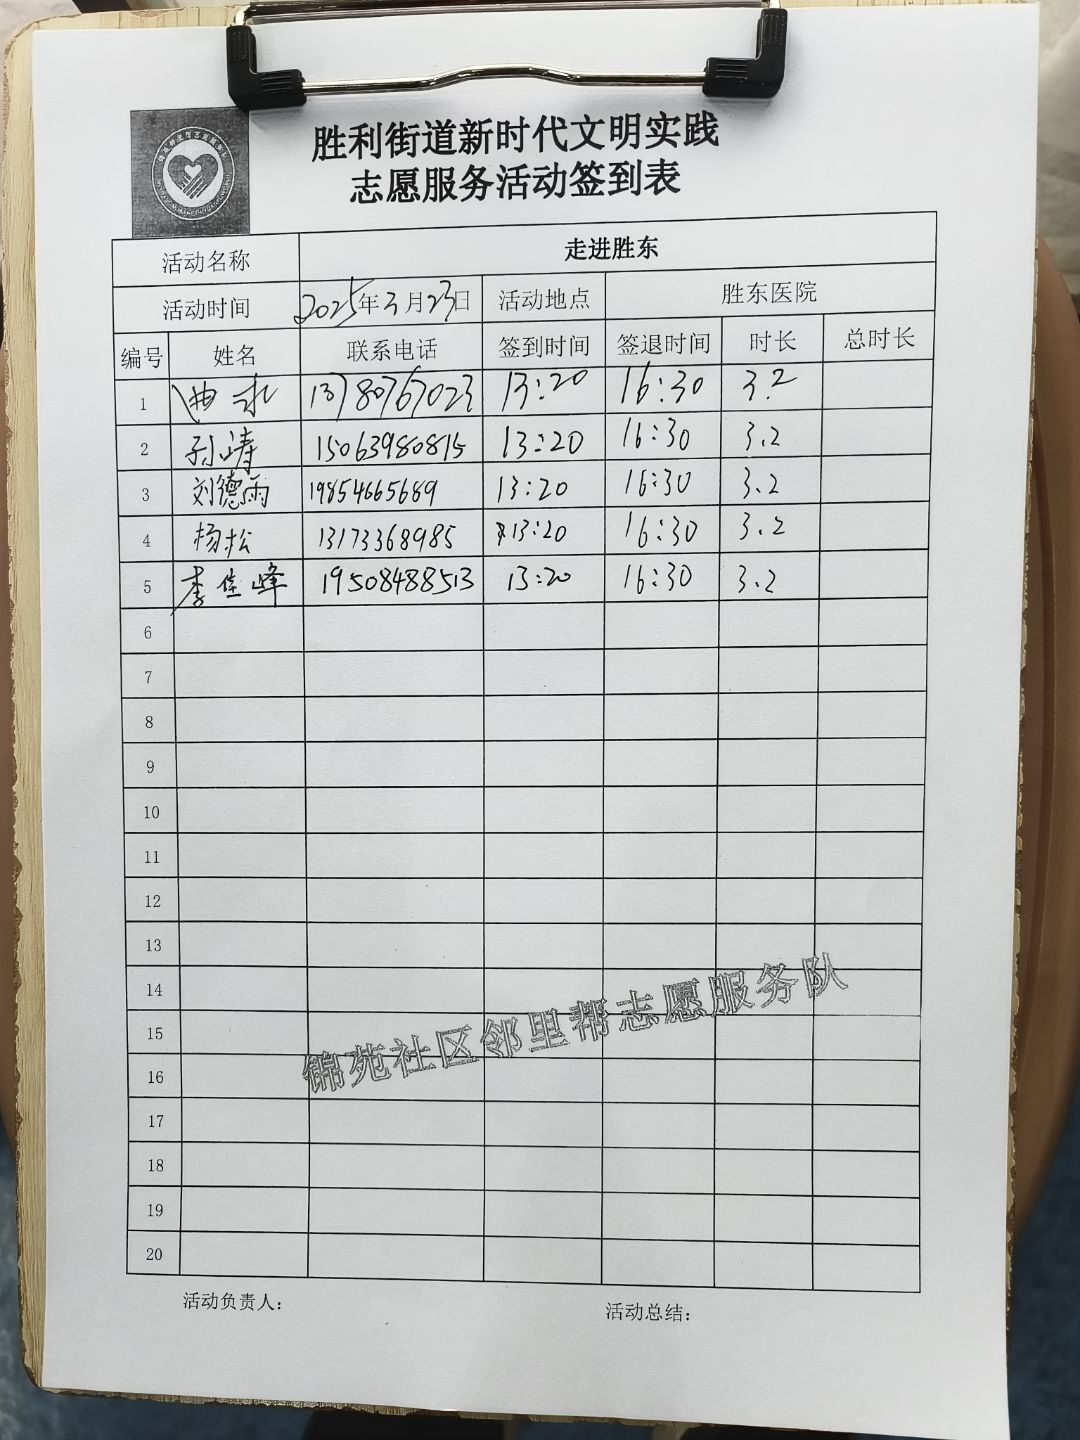 胜利街道新时代文明实践
志愿服务活动签到表
活动名称 走进胜东
活动时间 2025年3月23日 活动地点 胜东医院
编号 姓名 联系电话 签到时间 签退时间 时长 总时长
1 13780767023 13:20 16:30 3.2
2 孙涛 15063980815 13:20 16:30 3.2
3 刘德雨 19854665689 13:20 16:30 3.2
4 杨松 13173368985 13:20 16:30 3.2
5 李佳峰 19508488513 13:20 16:30 3.2
6
7
8
9
10
11
12
13
14
15
16
17
18
19
20
锦苑社区邻里帮志愿服务队
活动负责人: 活动总结: